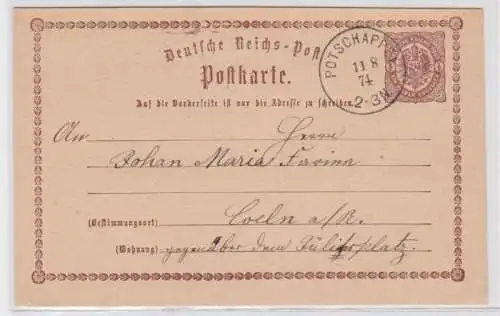 Deutsche Reichs-Post
Postkarte.
POTSCHAPPEL
11 8
74
2-3N
Auf die Vorderseite ist nur die Adresse zu schreiben.
An Herrn
Johan Maria Farina
(Bestimmungsort) Coeln a/R.
(Wohnung) gegenüber dem Jülichsplatz.